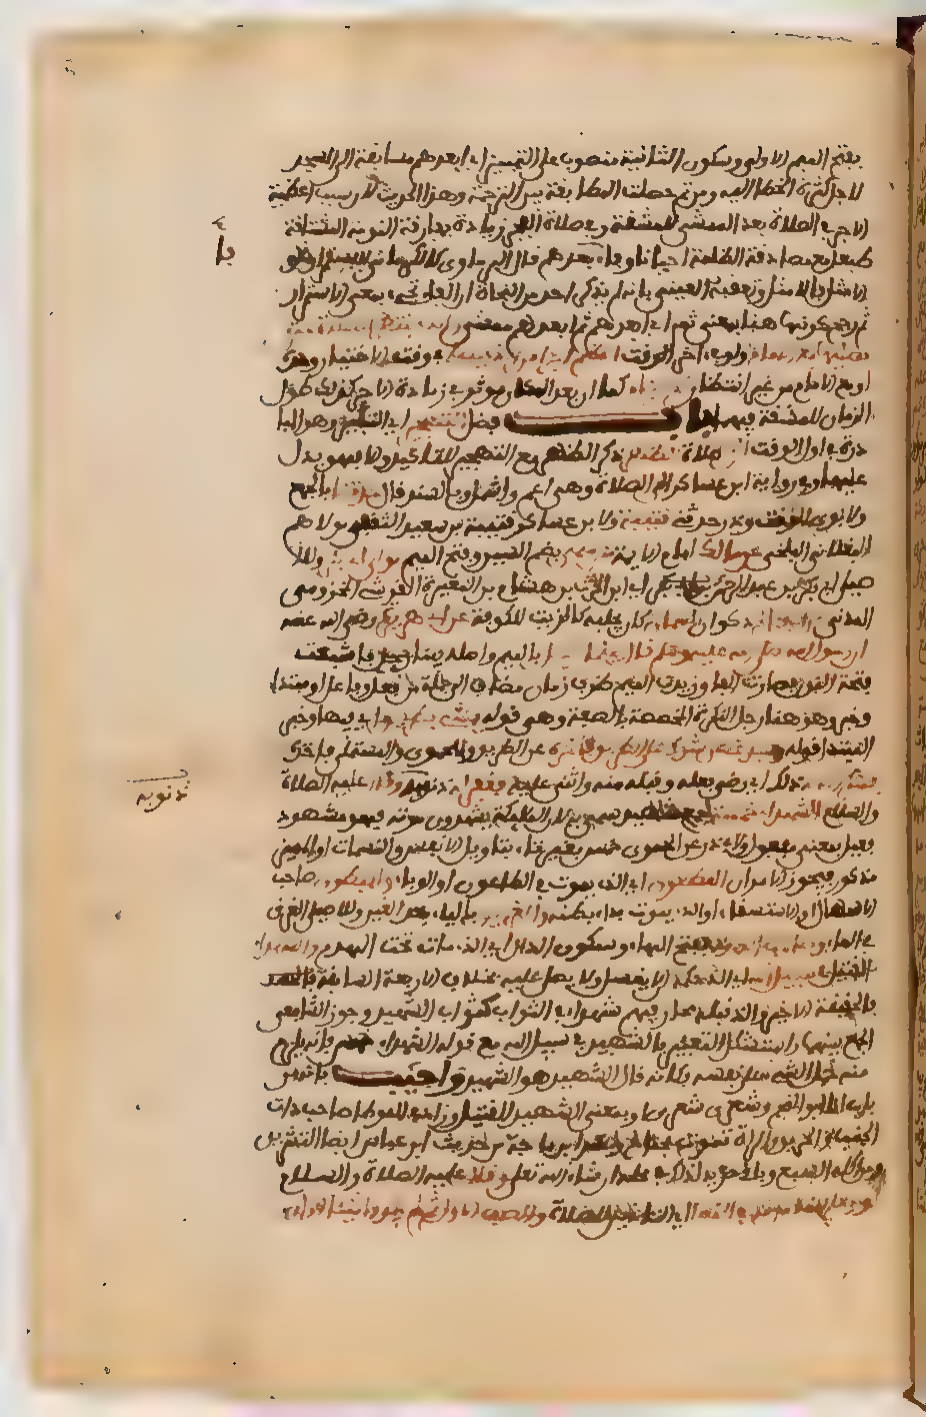 بفتح الميم الاولى وسكون الثانية منصوب على التمييز اي ابعدهم مسافة الى المسجد
لاجل كثرة الخطا اليه ومن ثم حصلت المطابقة بين الترجمة وهذا الحديث لان سبب اعظمية
الاجر في الصلاة بعد المشي للمشقة وفي صلاة الفجر زيادة بمفارقة النومة المشتاقة
طبعا مع مصادفة الظلمة احيانا وفاء بعدهم قال البرماوي كالكرماني للاستمرار نحو
الامثل فالامثل وتعقبه العيني بانه لم يذكر احد من النحاة ان الفاء تجيء بمعنى الاستمرار
ثم رجح كونها هنا بمعنى ثم اي ابعدهم ثم ابعدهم ممشى والذي ينتظر الصلاة حتى
يصليها مع الامام ولو في اخر الوقت اعظم اجرا من الذي يصلي في وقت الاختيار وحده
او مع الامام من غير انتظار ثم ينام كما ان بعد المكان موثر في زيادة الاجر كذلك طول
الزمان للمشقة فيهما باب فضل التهجير اي التبكير وهو المبا
درة في اول الوقت الى صلاة الظهر ذكر الظهر مع التهجير للتاكيد والا فهو يدل
عليها وفي رواية ابن عساكر الى الصلاة وهي اعم واشمل وبالسند قال حدثنا بالجمع
ولابوي الوقت وذر حدثني قتيبة ولابن عساكر قتيبة بن سعيد الثقفي مولاهم
البغلاني البلخي عن مالك امام الايمة عن سمي بضم السين وفتح الميم مولى ابي بكر وللا
صيلي ابي بكر بن عبد الرحمن اي ابن الحارث بن هشام بن المغيرة القرشي المخزومي
المدني عن ابي صالح ذكوان السمان كان يجلبه كالزيت للكوفة عن ابي هريرة رضي الله عنه
ان رسول الله صلى الله عليه وسلم قال بينما بالميم واصله بين فاشبعت
فتحة النون فصارت الفا وزيدت الميم ظرف زمان مضاف الى جملة من فعل وفاعل او مبتدا
وخبر وهو هنا رجل النكرة المخصصة بالصفة وهي قوله يمشي بطريق اي فيها وخبر
المبتدا قوله وجد غصن شوك على الطريق فاخره عن الطريق وللحموي والمستملي فاخذه
فشكر الله له ذلك اي رضي فعله وقبله منه واثنى عليه فغفر له ذنوبه وقال عليه الصلاة
والسلام الشهداء خمسة جمع شهيد سمي به لان الملائكة يشهدون موته فهو مشهود
فعيل بمعنى مفعول ولابي ذر عن الحموي خمس بغير تاء بتاويل الانفس والنسمات او المميز
مذكور فيجوز الامران المطعون اي الذي يموت في الطاعون اي الوباء والمبطون صاحب
الاسهال او الاستسقاء او الذي يموت بداء بطنه والغريق بالياء بعد الغين وللاصيلي الغرق
في الماء وصاحب الهدم بفتح الهاء وسكون الدال اي الذي مات تحت الهدم والشهيد
القتيل في سبيل الله الذي حكمه الا يغسل ولا يصلى عليه بخلاف الاربعة السابقة فالشهيد
بالحقيقة الاخير والذي قبله مجاز فهم شهداء في الثواب كثواب الشهيد وجوز الشافعي
الجمع بينهما واستشكل التعبير بالشهيد في سبيل الله مع قوله الشهداء خمسة فانه يلزم
منه حمل الشيء على نفسه فكانه قال الشهيد هو الشهيد واجيب بانه من
باب انا ابو النجم وشعري شعري وبمعنى الشهيد القتيل وزاد في الموطا صاحب ذات
الجنب والحريق والمراة تموت بجمع وعند ابن ماجة من حديث ابن عباس ايضا الشريق
وما اكله السبع وياتي مزيد لذلك في محله ان شاء الله تعالى وقال عليه الصلاة والسلام
لو يعلم الناس ما في النداء اي التاذين للصلاة والصف الاول ثم لم يجدوا شيئا الا ان
با
ذنوبه